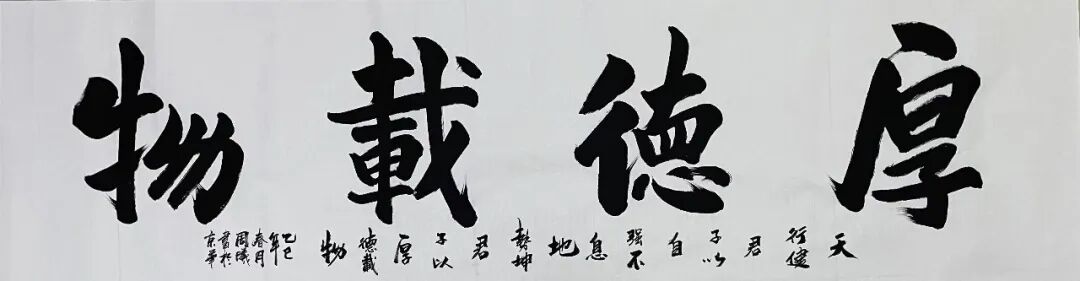 厚德載物
天行健君子以自强不息地勢坤君子以厚德載物
乙巳年春月周曦書於京華